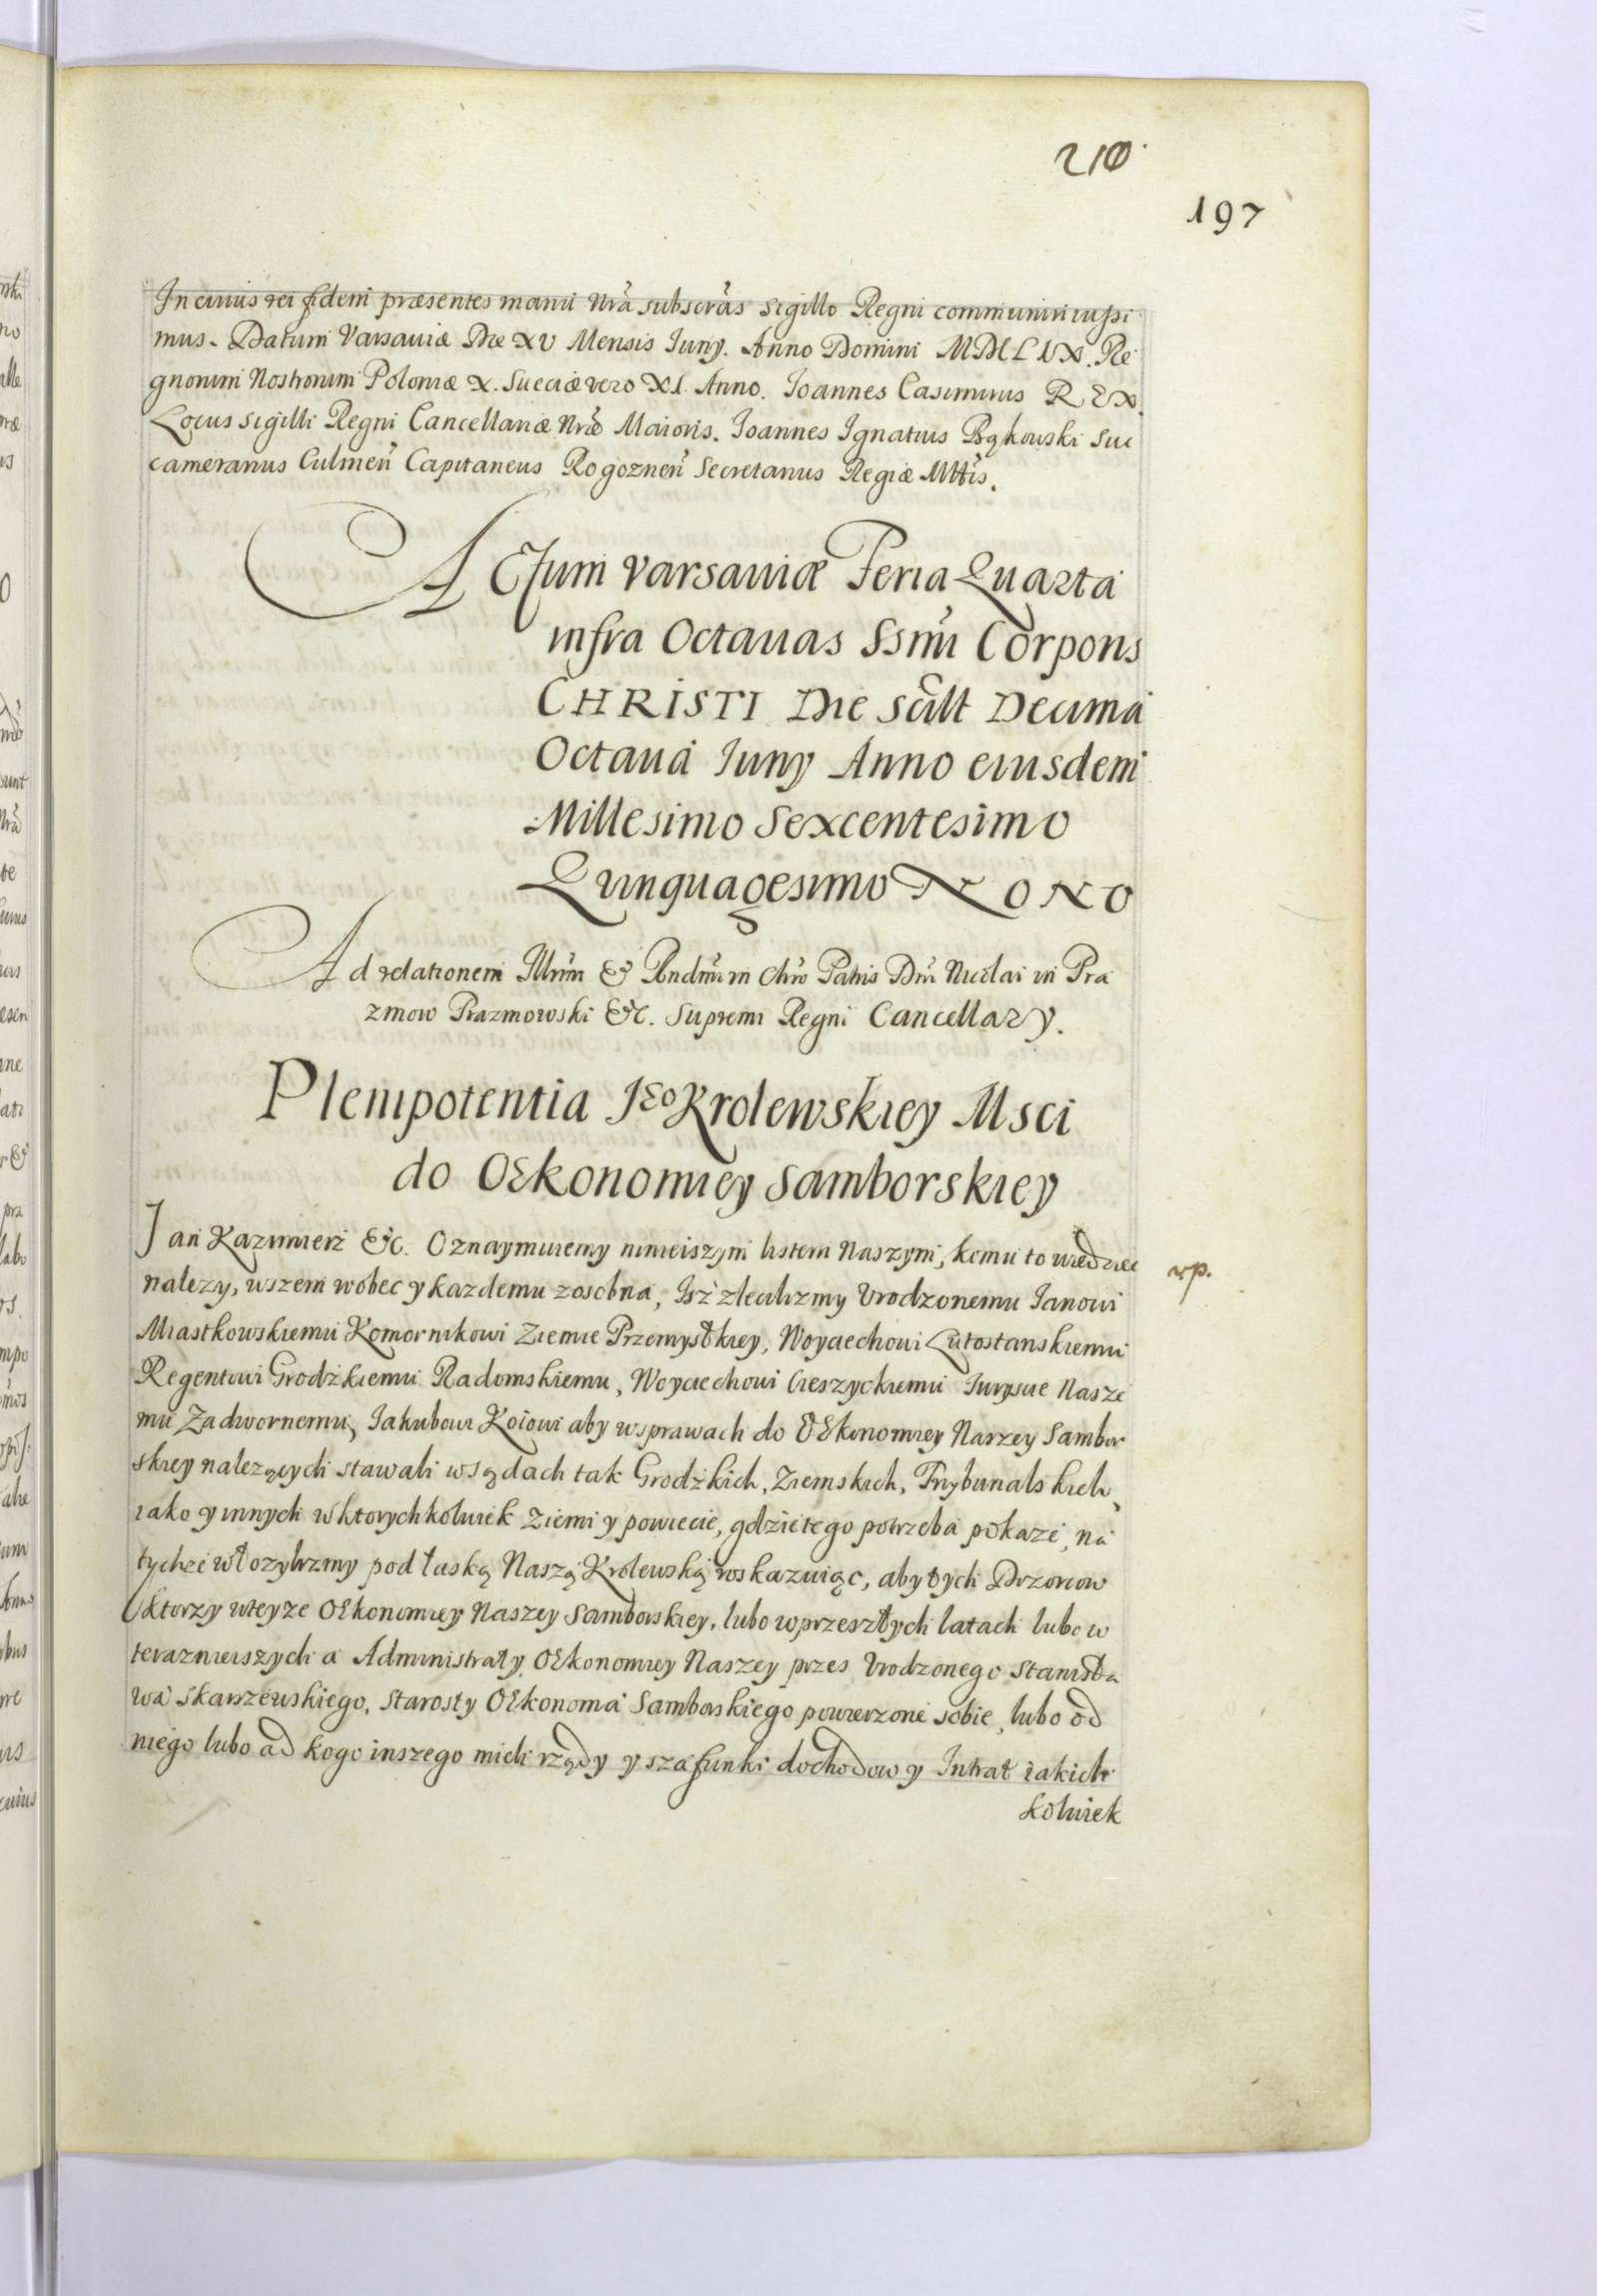 210
197
In cuius rei fidem præsentes manu nrã subscrãs Sigillo Regni communiri iussi
mus. Datum Varsaviæ Die XV Mensis Juny. Anno Domini MDCLIX. Re
gnorum Nostrorum Poloniæ X. Sueciæ vero XI Anno. Joannes Casimirus REX.
Locus sigilli Regni Cancellariæ Nræ Maioris. Joannes Ignatius Bąkowski Suc
cameranus Culmeñ Capitaneus Rogozneñ Secretarius Regiæ Mttis.
ACtum Varsaviæ Feria Quarta
infra Octavas Ssmi Corporis
CHRISTI Die Scilt Decima
Octava Juny Anno eiusdem
Millesimo Sexcentesimo
Quinquagesimo NONO
Ad relationem Illrm & Rndm in Chro Patris Dni Nicolai in Pra
zmow Prazmowski &c. Supremi Regni Cancellary.
Plenipotentia Jeo Krolewskiey Msci
do OEkonomiey Samborskiey
Jan Kazimierz &c. Oznaymuiemy ninieiszym listem Naszym, komu to wiedziec
rp.
nalezy, wszem wobec y kazdemu zosobna, Isz zlecilizmy Urodzonemu Janowi
Miastkowskiemu Komornikowi Ziemie Przemyslkiey, Woyciechowi Lutostanskiemu
Regentowi Grodzkiemu Radomskiemu, Woyciechowi Cieszyckiemu Juryscie Nasze
mu Zadwornemu, Jakubowi Koiowi aby w sprawach do OEkonomiey Naszey Sambor
skiey nalezących stawali w Sądach tak Grodzkich, Ziemskich, Trybunalskich,
iako y innych w ktorychkolwiek Ziemi y powiecie, gdzie tego potrzeba pokaze, na
tychze wlozylizmy pod łaską Naszą Krolewską roskazuiąc, aby tych Dozorcow
ktorzy wteyze OEkonomiey Naszey Samborskiey, lubo w przeszłych latach lubo w
teraznieiszych a Administraty OEkonomiey Naszey przes Urodzonego Stanisła
wa Skarszewskiego, Starosty OEkonoma Samborskiego powierzone sobie, lubo od
niego lubo ad kogo inszego mieli rządy y szafunki dochodow y Intrat iakich
kolwiek